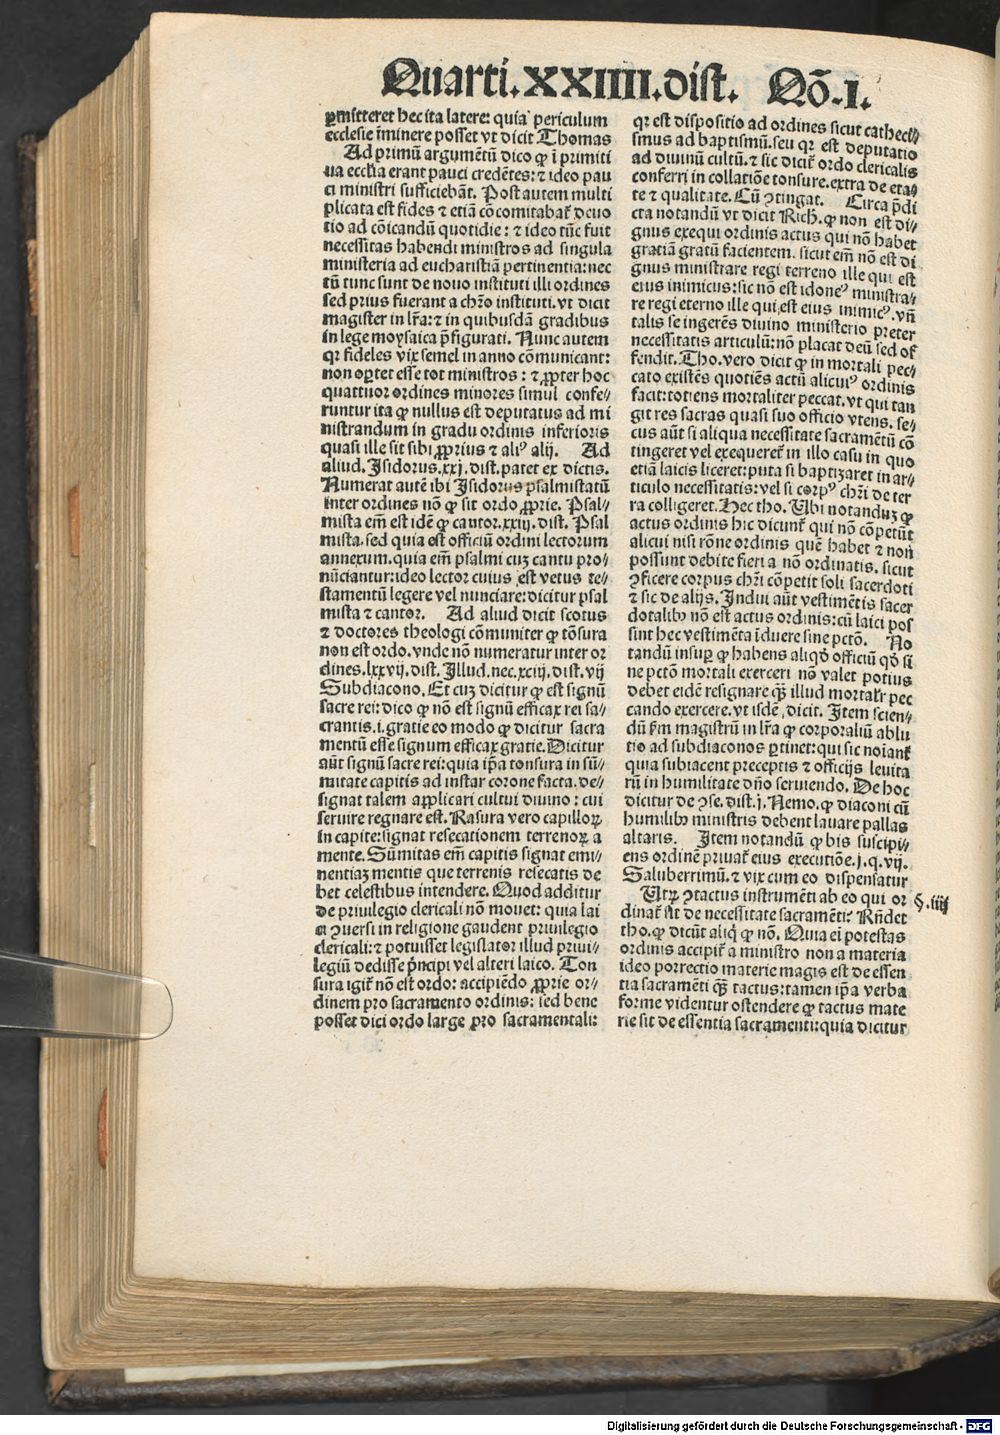 Quarti.XXIIII.dist. Qō.I.
ꝑmitteret hec ita latere: quia periculum
ecclesie īminere posset vt dicit Thomas
Ad primū argumētū dico ꝙ ī primiti
ua ecclīa erant pauci credētes: ⁊ ideo pau
ci ministri sufficiebāt. Post autem multi
plicata est fides ⁊ etiā cōcomitabat̄ deuo
tio ad cōicandū quotidie: ⁊ ideo tūc fuit
necessitas habendi ministros ad singula
ministeria ad eucharistiā pertinentia: nec
tū tunc sunt de nouo instituti illi ordines
sed prius fuerant a chr̄o instituti. vt dicit
magister in lr̄a: ⁊ in quibusdā gradibus
in lege moysaica p̄figurati. Nunc autem
qꝛ fideles vix semel in anno cōmunicant:
non oꝑtet esse tot ministros: ⁊ ꝓpter hoc
quattuor ordines minores simul confe-
runtur ita ꝙ nullus est deputatus ad mi
nistrandum in gradu ordinis inferioris
quasi ille sit sibi ꝓprius ⁊ aliꝰ alij. Ad
aliud. Isidorus.xxj.dist.patet ex dictis.
Numerat autē ibi Isidorus psalmistatū
inter ordines nō ꝙ sit ordo ꝓprie. Psal-
mista em̄ est idē ꝙ cantor.xxiij.dist. Psal
mista. sed quia est officiū ordini lectorum
annexum. quia em̄ psalmi cuꝫ cantu pro-
nūciantur: ideo lector cuius est vetus te-
stamentū legere vel nunciare: dicitur psal
mista ⁊ cantor. Ad aliud dicit scotus
⁊ doctores theologi cōmuniter ꝙ tōsura
non est ordo. vnde nō numeratur inter or
dines.lxxvij.dist. Illud.nec.xciij.dist.vij
Subdiacono. Et cuꝫ dicitur ꝙ est signū
sacre rei: dico ꝙ nō est signū efficax rei sa-
crantis.i.gratie eo modo ꝙ dicitur sacra
mentū esse signum efficax gratie. Dicitur
aūt signū sacre rei: quia ip̄a tonsura in sū-
mitate capitis ad instar corone facta. de-
signat talem applicari cultui diuino: cui
seruire regnare est. Rasura vero capilloꝝ
in capite: signat resecationem terrenoꝝ a
mente. Sūmitas em̄ capitis signat emi-
nentiaꝫ mentis que terrenis resecatis de
bet celestibus intendere. Quod additur
de priuilegio clericali nō mouet: quia lai
a ꝯuersi in religione gaudent priuilegio
clericali: ⁊ potuisset legislator illud priui-
legiū dedisse p̄ncipi vel alteri laico. Ton
sura igit̄ nō est ordo: accipiēdo ꝓprie or-
dinem pro sacramento ordinis: sed bene
posset dici ordo large pro sacramentali:
qꝛ est dispositio ad ordines sicut cathechi-
smus ad baptismū. seu qꝛ est deputatio
ad diuinū cultū. ⁊ sic dicit̄ ordo clericalis
conferri in collatiōe tonsure. extra de eta-
te ⁊ qualitate. Cū ꝯtingat. Circa p̄di
cta notandū vt dicit Rich. ꝙ non est di-
gnus exequi ordinis actus qui nō habet
gratiā gratū facientem. sicut em̄ nō est di
gnus ministrare regi terreno ille qui est
eius inimicus: sic nō est idoneꝰ ministra-
re regi eterno ille qui est eius inimicꝰ. vn̄
talis se ingerēs diuino ministerio preter
necessitatis articulū: nō placat deū sed of
fendit. Tho. vero dicit ꝙ in mortali pec-
cato existēs quotiēs actū alicuiꝰ ordinis
facit: totiens mortaliter peccat. vt qui tan
git res sacras quasi suo officio vtens. se-
cus aūt si aliqua necessitate sacramētū cō
tingeret vel exequeret̄ in illo casu in quo
etiā laicis liceret: puta si baptizaret in ar-
ticulo necessitatis: vel si corpꝰ chr̄i de ter
ra colligeret. Hec tho. Ubi notanduꝫ ꝙ
actus ordinis hic dicunt̄ qui nō cōpetūt
alicui nisi rōne ordinis quē habet ⁊ non
possunt debite fieri a nō ordinatis. sicut
ꝯficere corpus chr̄i cōpetit soli sacerdoti
⁊ sic de alijs. Indui aūt vestimētis sacer
dotalibꝰ nō est actus ordinis: cū laici pos
sint hec vestimēta īduere sine pctō. No
tandū insuꝑ ꝙ habens aliqd̄ officiū qd̄ si
ne pctō mortali exerceri nō valet potius
debet eidē resignare qꝫ̄ illud mortalr̄ pec
cando exercere. vt isdē dicit. Item scien-
dū km̄ magistrū in lr̄a ꝙ corporaliū ablu
tio ad subdiaconos ꝑtinet: qui sic noīant̄
quia subiacent preceptis ⁊ officijs leuita
rū in humilitate dn̄o seruiendo. De hoc
dicitur de ꝯse.dist.j. Nemo. ꝙ diaconi cū
humilibꝰ ministris debent lauare pallas
altaris. Item notandū ꝙ bis suscipi-
ens ordinē priuat̄ eius executiōe.j.q.vij.
Saluberrimū. ⁊ vix cum eo dispensatur
Utꝝ ꝯtactus instrumēti ab eo qui or
dinat̄ sit de necessitate sacramēti? Rn̄det
tho. ꝙ dicūt aliq̄ ꝙ nō. Quia ei potestas
ordinis accipit̄ a ministro non a materia
ideo porrectio materie magis est de essen
tia sacramēti qꝫ̄ tactus: tamen ip̄a verba
forme videntur ostendere ꝙ tactus mate
rie sit de essentia sacramenti: quia dicitur
§.iiij
Digitalisierung gefördert durch die Deutsche Forschungsgemeinschaft - DFG